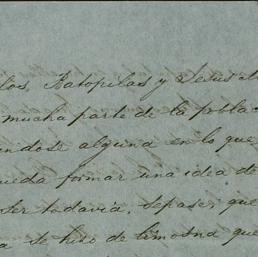 los, Batopilas y Jesus
mucha parte de la pobla
andose alguna en lo que
ueda formar una idea de
ser todavia, sepase, que
a se hiso de limosna que